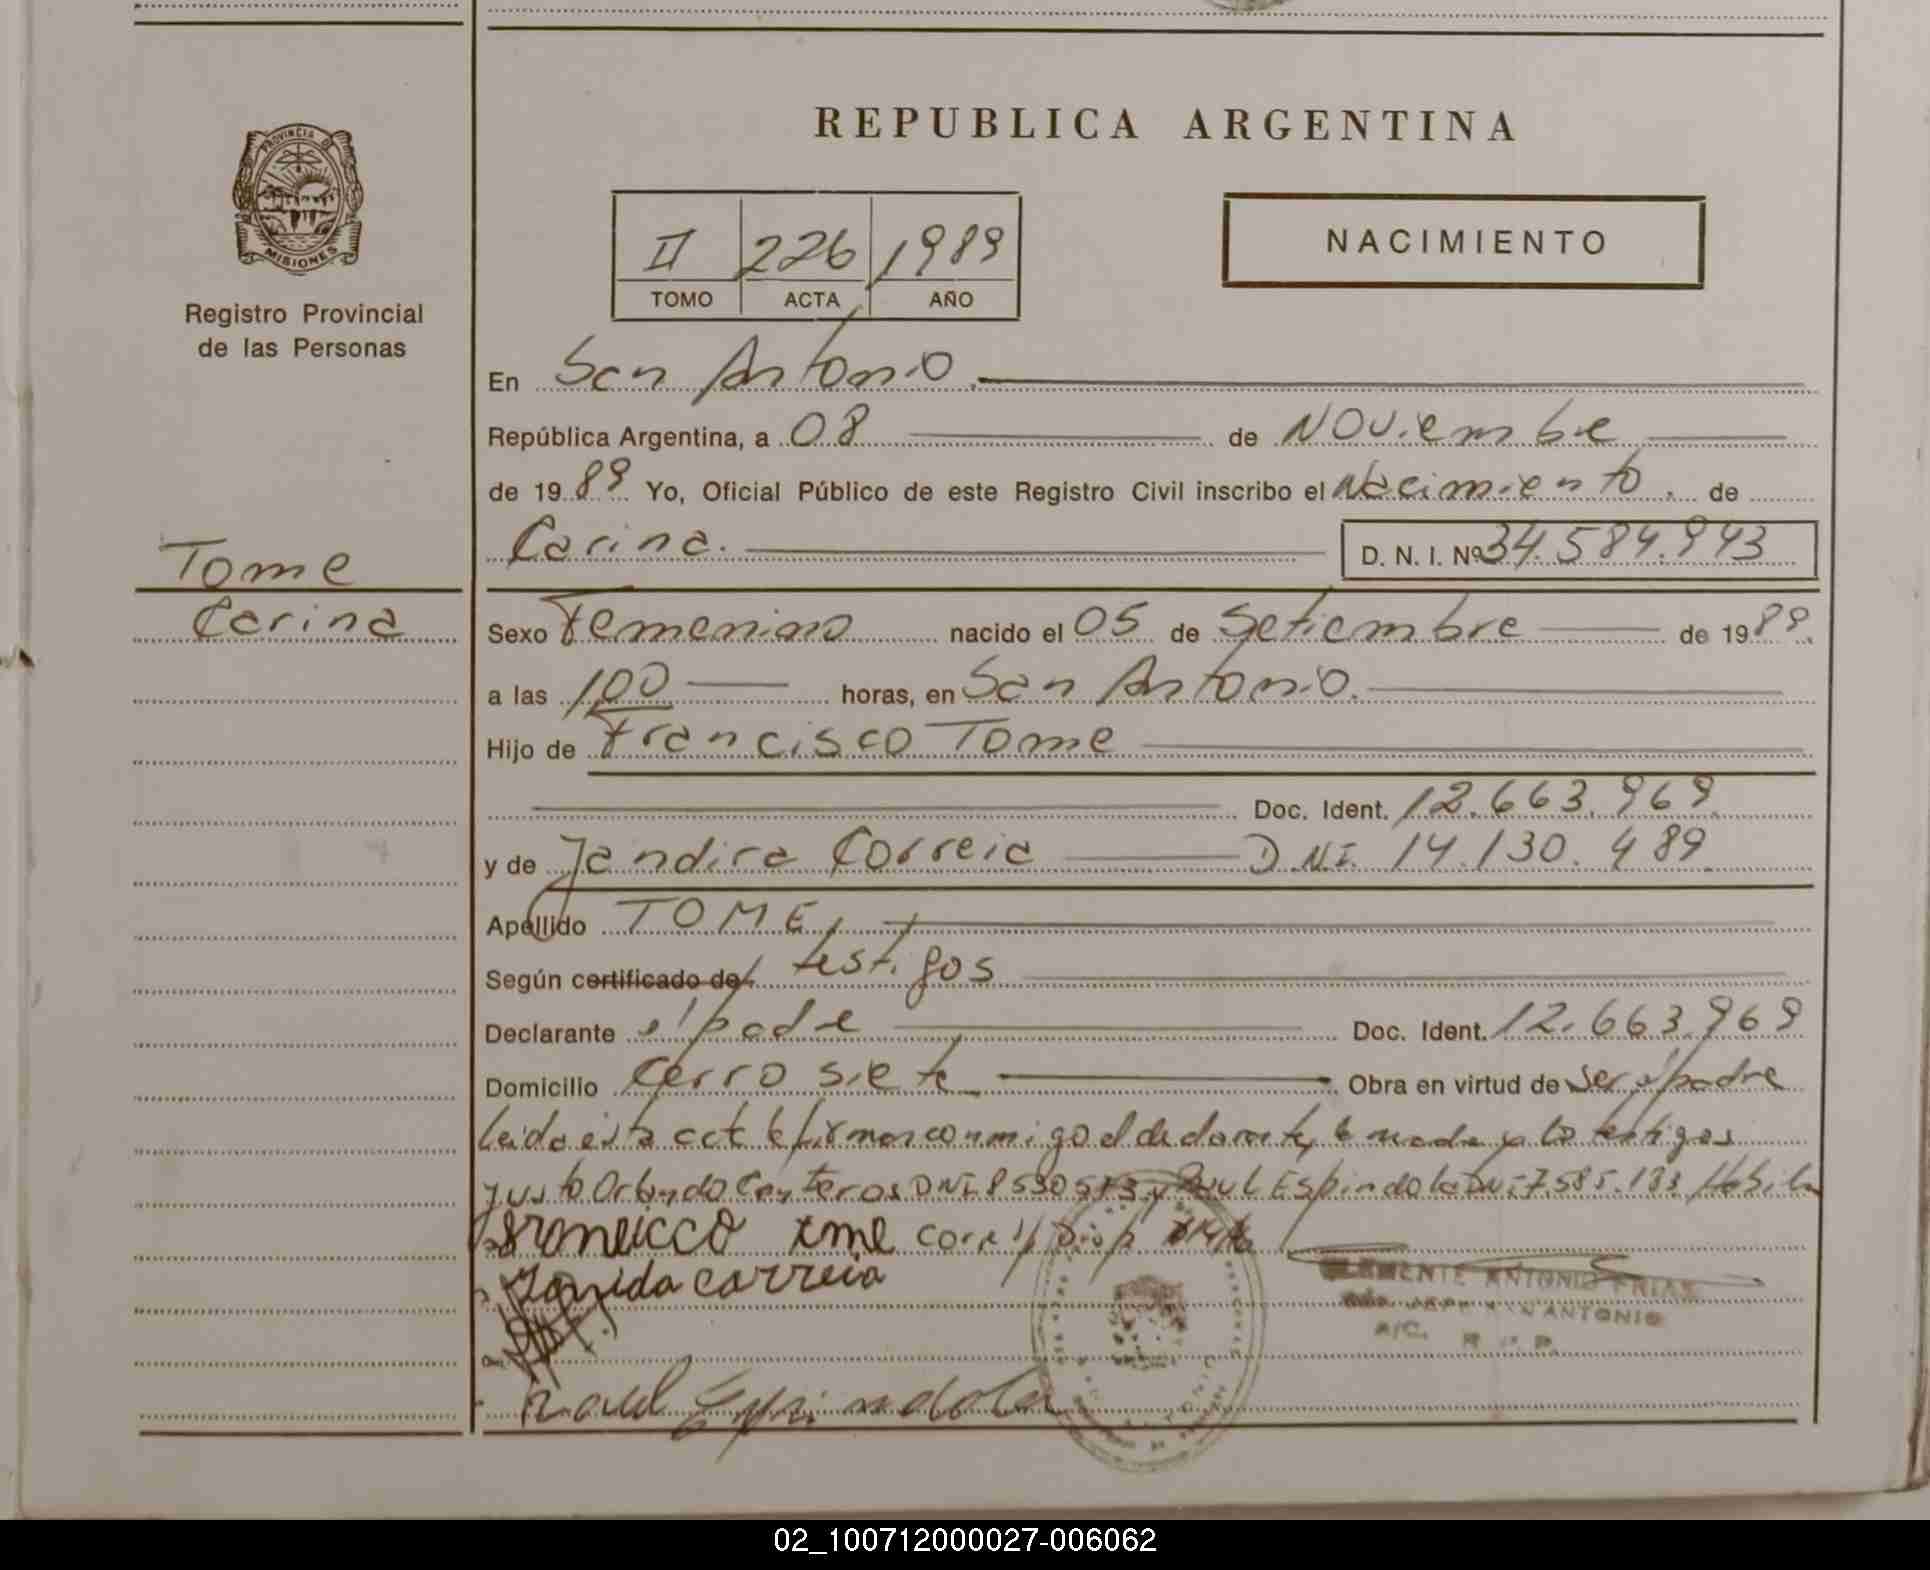 PROVINCIA DE
MISIONES
Registro Provincial
de las Personas
Tome
Carina
REPUBLICA ARGENTINA
II 226 1989
TOMO ACTA AÑO
NACIMIENTO
En San Antonio.
República Argentina, a 08 de Noviembre
de 1989 Yo, Oficial Público de este Registro Civil inscribo el Nacimiento. de
Carina. D. N. I. Nº 34.584.943
Sexo Femenino nacido el 05 de Setiembre de 1989.
a las 100 horas, en San Antonio.
Hijo de Francisco Tome
Doc. Ident. 12.663.969.
y de Jandira Correia D.N.I. 14.130.489
Apellido TOME,
Según certificado de testigos
Declarante el padre Doc. Ident. 12.663.969
Domicilio Cerro siete Obra en virtud de ser el padre
Leida esta acta la firman conmigo el declarante, la madre y los testigos
Justo Orlando DNI 8530513 y Raul Espindola DNI 7.585.183
tome
correia
Raul Espindola
CLEMENTE ANTONIO FRIAS
ANTONIO
A/C. R. P.
02_100712000027-006062